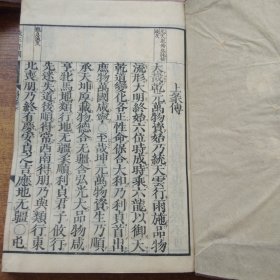 上彖傳
大哉乾元萬物資始乃統天雲行雨施品物
流形大明終始六位時成時乘六龍以御天
乾道變化各正性命保合大和乃利貞首出
庶物萬國咸寧○至哉坤元萬物資生乃順
承天坤厚載物德合无疆含弘光大品物咸
亨牝馬地類行地无疆柔順利貞君子攸行
先迷失道後順得常西南得朋乃與類行東
北喪朋乃終有慶安貞之吉應地无疆○屯